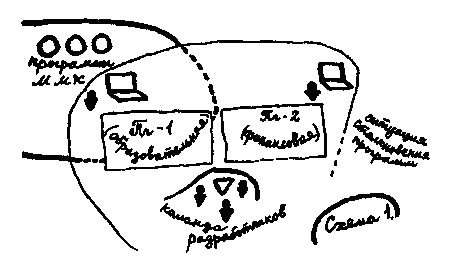 программы
ММК
Пг-1
(образовательная)
Пг-2
(финансовая)
ситуация
столкновения
программ
команда
разработчиков
Схема 1.